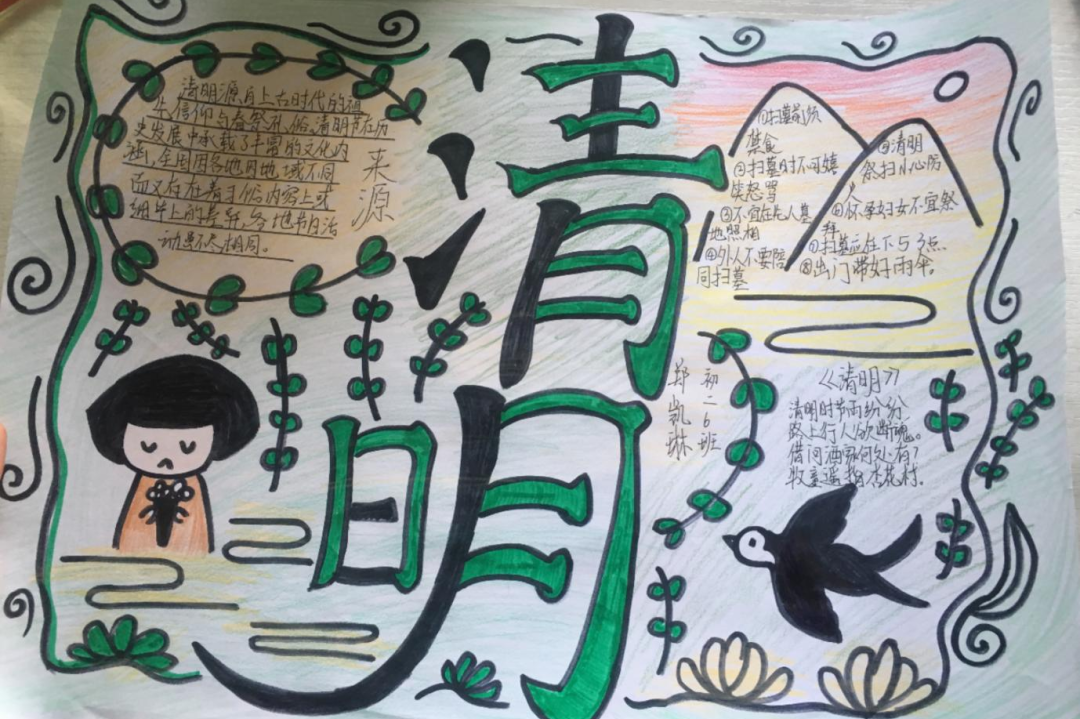 清明
来源
清明源自上古时代的祖
先信仰与春祭礼俗,清明节在历
史发展中承载了丰富的文化内
涵,全国因各地因地域不同
而又存在着习俗内容上或
细节上的差异,各地节日活
动虽不尽相同。
①扫墓前须
禁食
②扫墓时不可嬉
笑怒骂
③不宜在先人墓
地照相
④外人不要陪
同扫墓
⑤清明
祭扫小心防
⑥怀孕妇女不宜祭
拜
⑦扫墓应在下5 3点
⑧出门带好雨伞。
初二6班
郑凯琳
《清明》
清明时节雨纷纷
路上行人欲断魂。
借问酒家何处有?
牧童遥指杏花村.